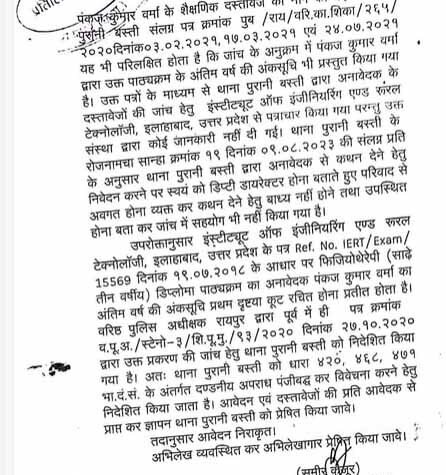 पंकज कुमार वर्मा के शैक्षणिक दस्तावेज
पुरानी बस्ती संलग्न पत्र क्रमांक पुब /राय/वरि.का.शिका/२६५/
२०२०दिनांक०३.०२.२०२१,१७.०३.२०२१ एवं २४.०७.२०२१
यह भी परिलक्षित होता है कि जांच के अनुक्रम में पंकज कुमार वर्मा
द्वारा उक्त पाठ्यक्रम के अंतिम वर्ष की अंकसूचि भी प्रस्तुत किया गया
है। उक्त पत्रों के माध्यम से थाना पुरानी बस्ती द्वारा अनावेदक के
दस्तावेजों की जांच हेतु इंस्टीट्यूट ऑफ इंजीनियरिंग एण्ड रूरल
टेक्नोलॉजी, इलाहाबाद, उत्तर प्रदेश से पत्राचार किया गया परन्तु उक्त
संस्था द्वारा कोई जानकारी नहीं दी गई। थाना पुरानी बस्ती के
रोजनामचा सान्हा क्रमांक १९ दिनांक ०९.०८.२०२३ की संलग्न प्रति
के अनुसार थाना पुरानी बस्ती द्वारा अनावेदक से कथन देने हेतु
निवेदन करने पर स्वयं को डिप्टी डायरेक्टर होना बताते हुए परिवाद से
अवगत होना व्यक्त कर कथन देने हेतु बाध्य नहीं होने तथा उपस्थित
होना बता कर जांच में सहयोग भी नहीं किया गया है।
उपरोक्तानुसार इंस्टीट्यूट ऑफ इंजीनियरिंग एण्ड रूरल
टेक्नोलॉजी, इलाहाबाद, उत्तर प्रदेश के पत्र Ref. No. IERT/Exam/
15569 दिनांक १९.०७.२०१८ के आधार पर फिजियोथेरेपी (साढ़े
तीन वर्षीय) डिप्लोमा पाठ्यक्रम का अनावेदक पंकज कुमार वर्मा का
अंतिम वर्ष की अंकसूचि प्रथम दृष्टया कूट रचित होना प्रतीत होता है।
वरिष्ठ पुलिस अधीक्षक रायपुर द्वारा पूर्व में ही पत्र क्रमांक
व.पु.अ./स्टेनो-३/शि.पू.मु./९३/२०२० दिनांक २७.१०.२०२०
द्वारा उक्त प्रकरण की जांच हेतु थाना पुरानी बस्ती को निदेशित किया
गया है। अतः थाना पुरानी बस्ती को धारा ४२०, ४६८, ४७१
भा.दं.सं. के अंतर्गत दण्डनीय अपराध पंजीबद्ध कर विवेचना करने हेतु
निदेशित किया जाता है। आवेदन एवं दस्तावेजों की प्रति आवेदक से
प्राप्त कर ज्ञापन थाना पुरानी बस्ती को प्रेषित किया जावे।
तदानुसार आवेदन निराकृत।
अभिलेख व्यवस्थित कर अभिलेखागार प्रेषित किया जावे।
(समीर कुजूर)